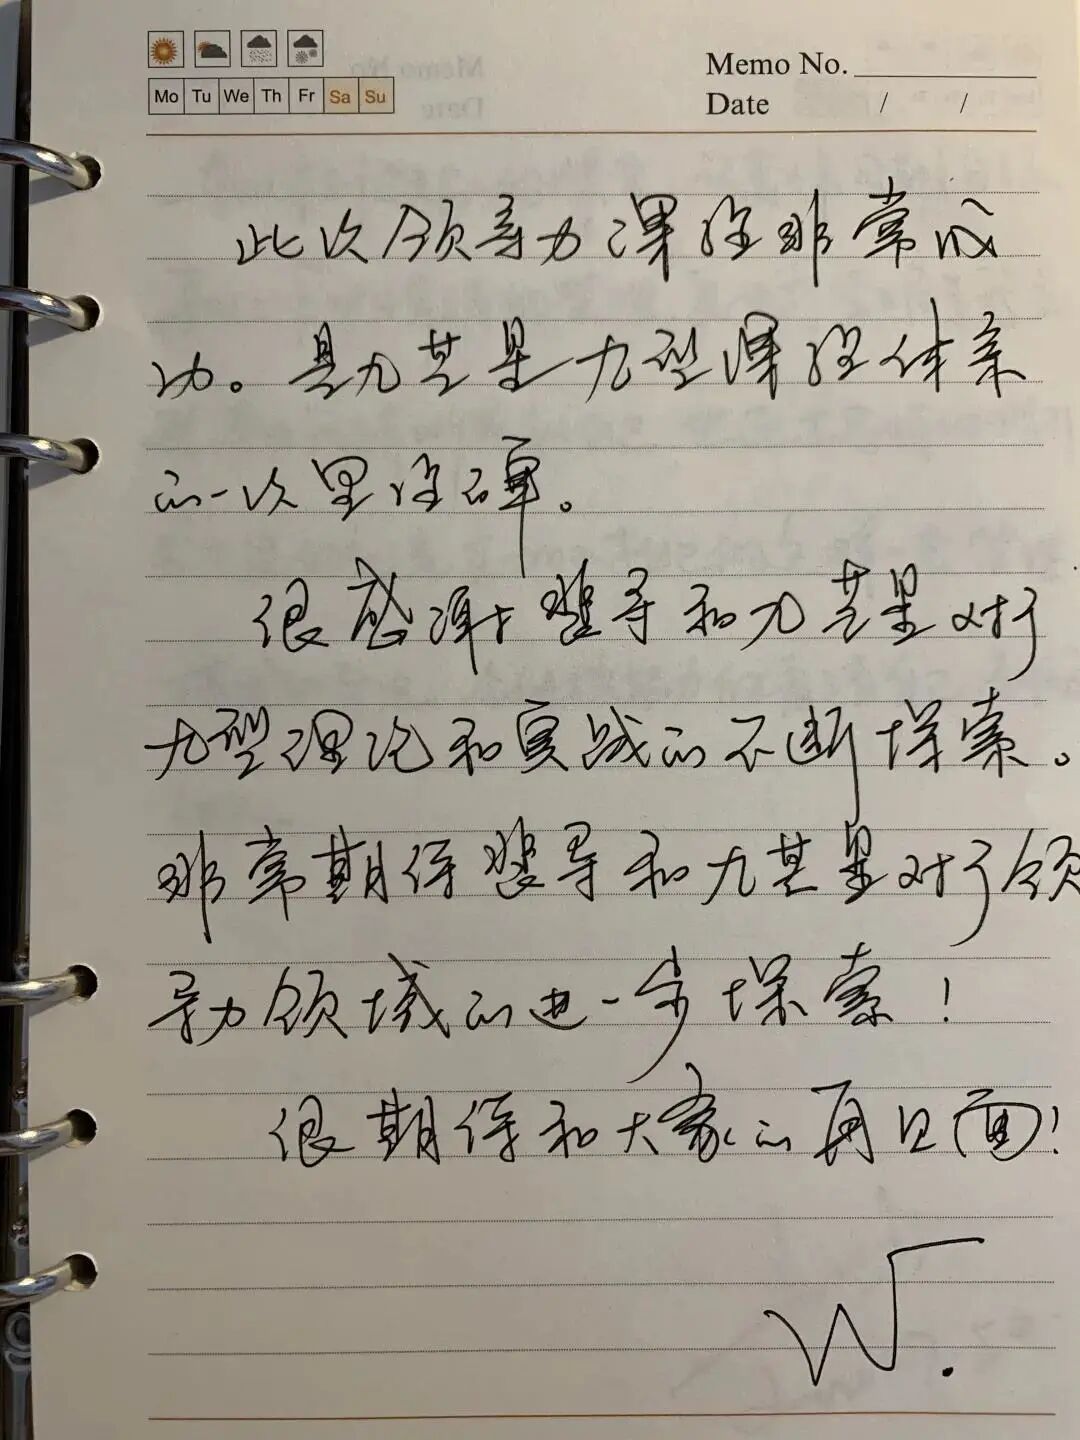 Mo Tu We Th Fr Sa Su
Memo No.
Date / /
此次领导力课程非常成
功。是九芒星九型课程体系
的一次里程碑。
很感谢裴导和九芒星对于
九型理论和实战的不断探索。
非常期待裴导和九芒星对于领
导力领域的进一步探索！
很期待和大家的再见面！
W.